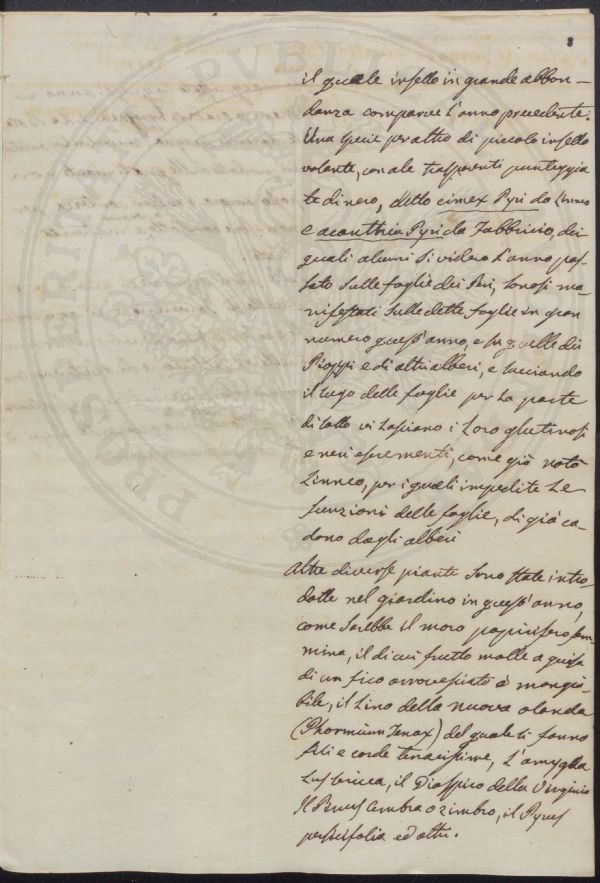 8
il quale insetto in grande abbon-
danza comparve l'anno precedente.
Una specie peraltro di piccolo insetto
volante, con ale trasparenti punteggia
te di nero, detto cimex Pyri da Linneo
e acanthia Pyri da Fabbricio, dei
quali alcuni si videro l'anno pas-
sato sulle foglie dei Peri, sonosi ma-
nifestati sulle dette foglie in gran
numero quest'anno, e su quelle dei
Pioppi e di altri alberi, e succiando
il sugo delle foglie per la parte
di sotto vi lasciano i loro glutinosi
e neri escrementi, come già notò
Linneo, per i quali impedite le
funzioni delle foglie, di già ca-
dono dagli alberi
Altre diverse piante sono state intro-
dotte nel giardino in quest'anno,
come sarebbe il moro papirifero fem-
mina, il di cui frutto molle a guisa
di un fico arrovesciato è mangia-
bile, il Lino della nuova olanda
(Phormium Tenax) del quale si fanno
fili e corde tenacissime, L'
il Diospiro della Virginia
Il Pinus Cembra o zimbro, il Pyrus
ed altri.
PROSPERI PVBLII